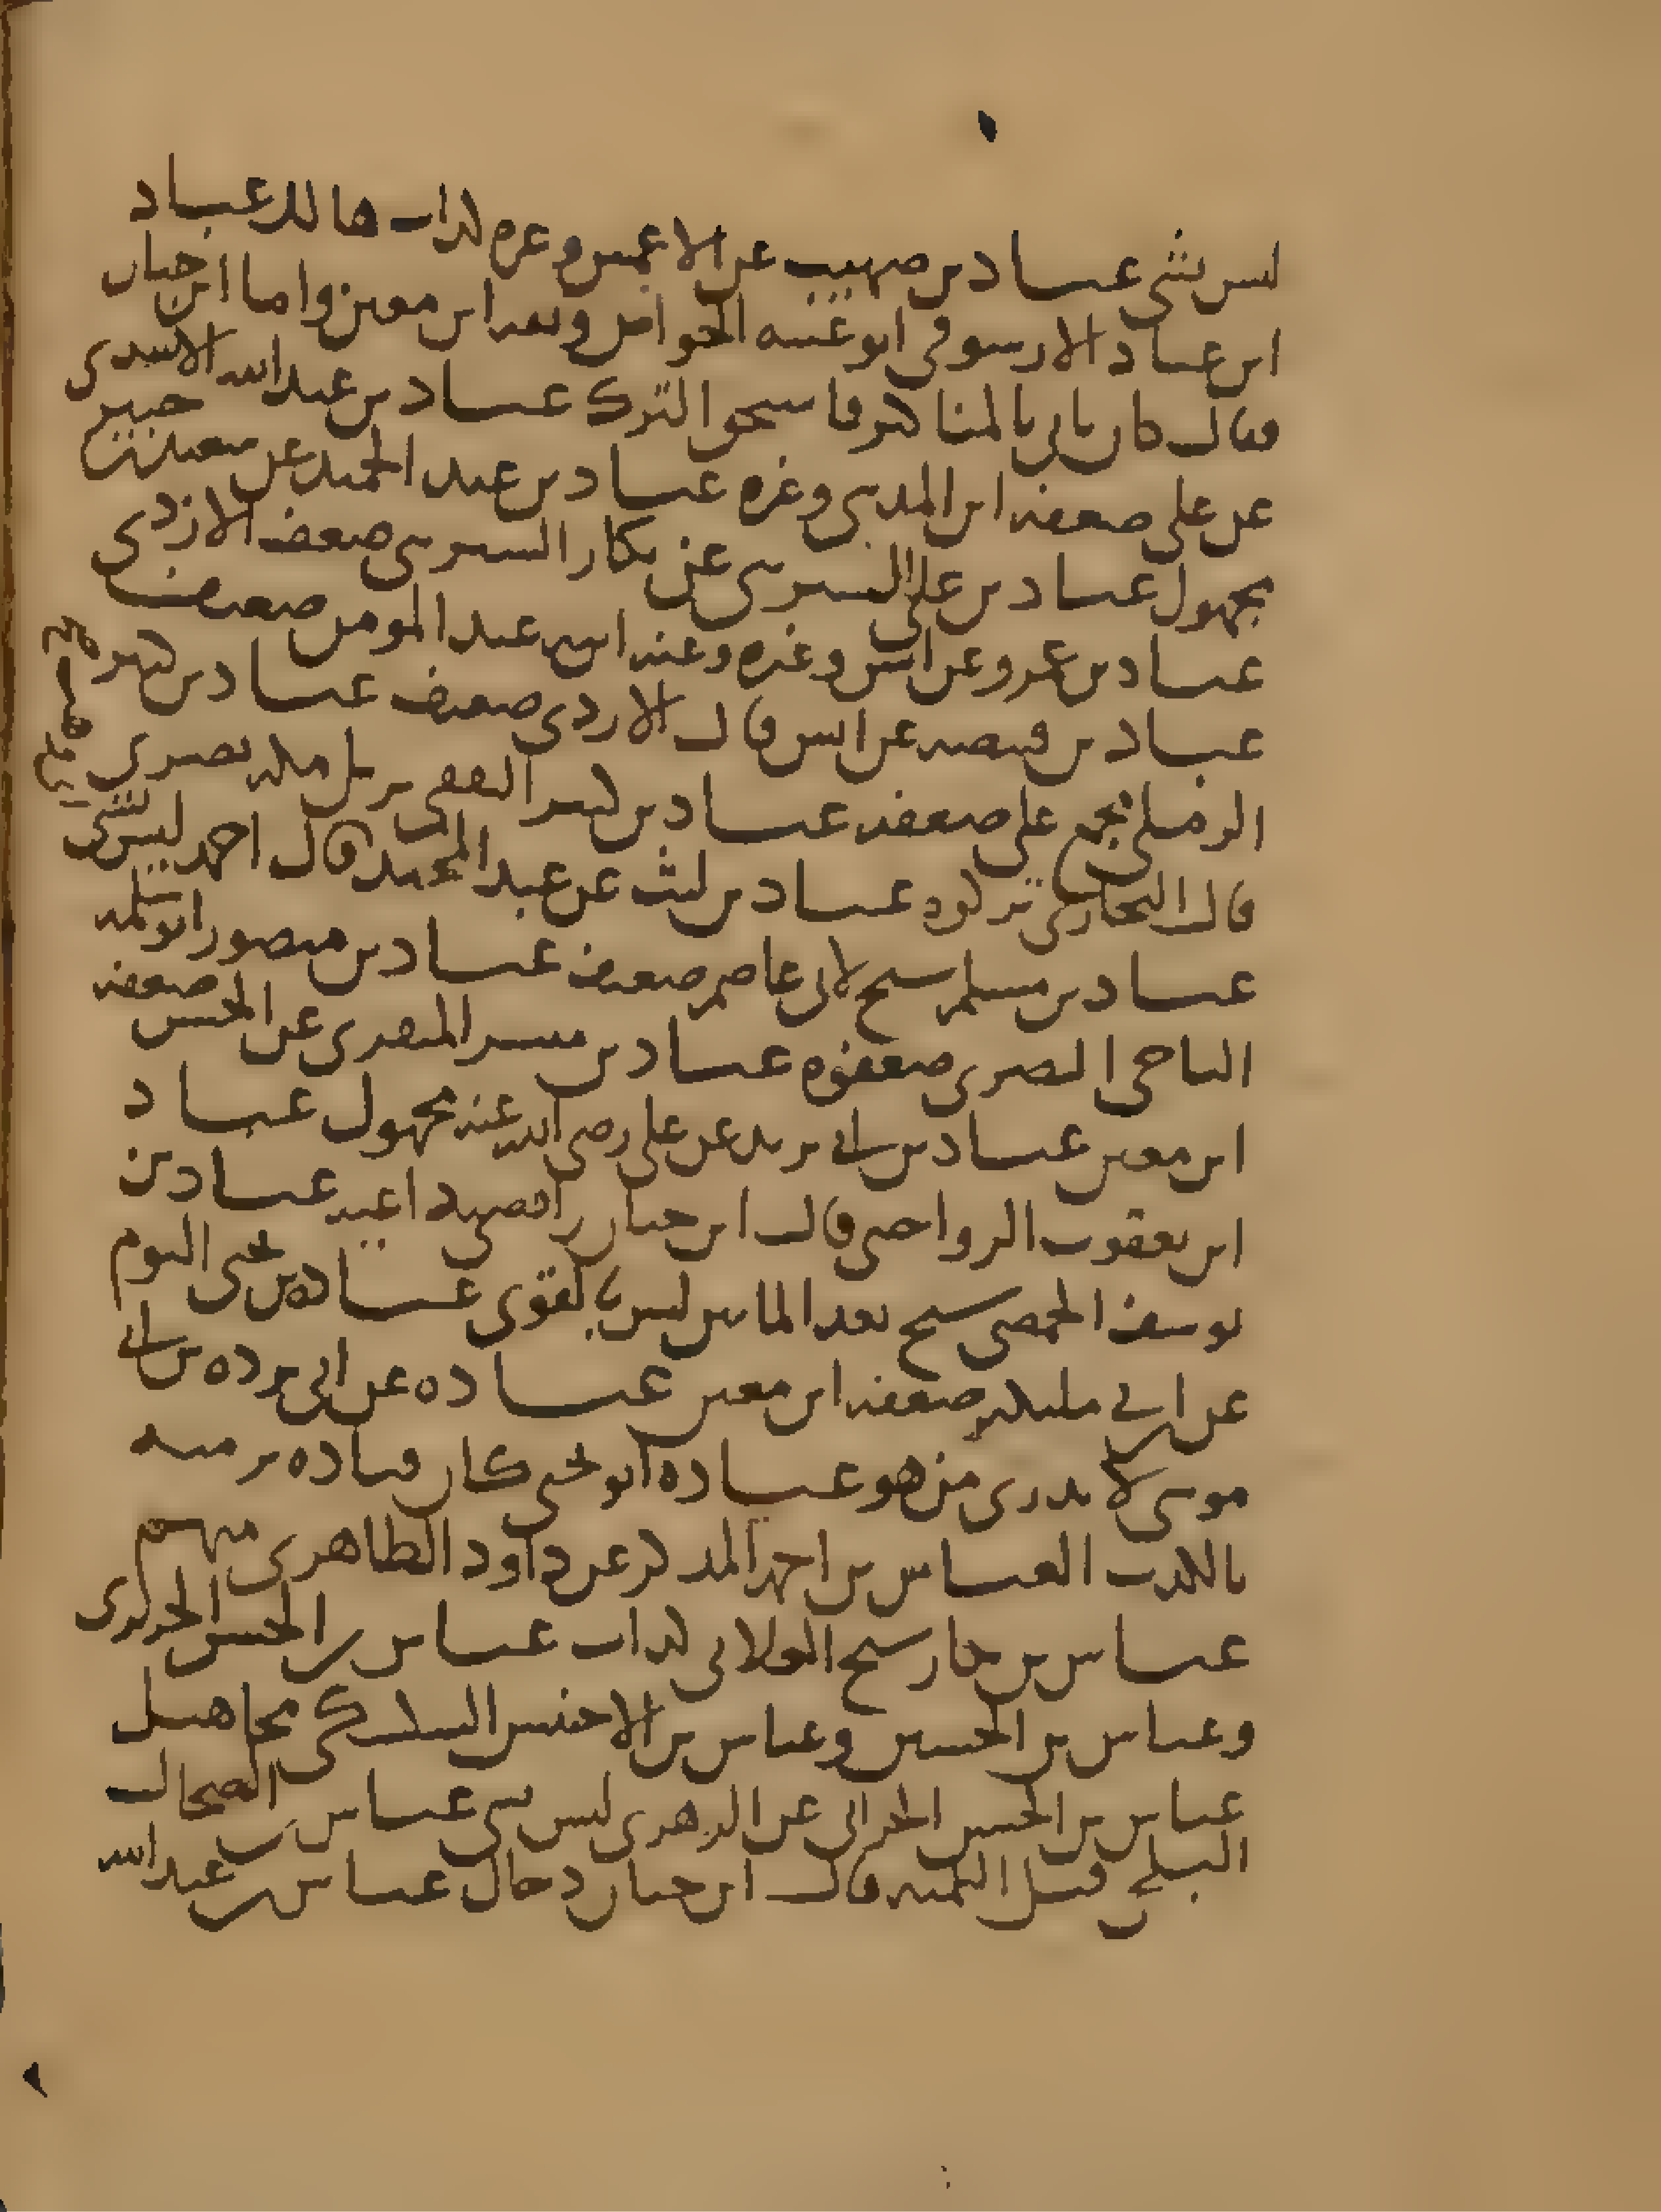 ليس بشي عباد بن صهيب عن الاعمش وغيره كذاب هالك عباد
ابن عباد الارسوفي ابو عتبه الخواص وثقه ابن معين واما ابن حبان
فقال كان ياتي بالمناكير فاستحق الترك عباد بن عبد الله الاسدي
عن علي ضعفه ابن المديني وغيره عباد بن عبد الحميد عن سعيد بن جبير
مجهول عباد بن علي السيريني عن بكار السيريني ضعفه الازدي
عباد بن عمرو عن انس وغيره وعنه ابنه عبد المومن ضعيف
عباد بن قبيصه عن انس قال الازدي ضعيف عباد بن كثير
الرملي مجمع على ضعفه عباد بن كثير الثقفي نزيل مكه بصري
قال البخاري تركوه عباد بن ليث عن عبد المجيد قال احمد ليس بشي
عباد بن مسلم شيخ لابي عاصم ضعيف عباد بن منصور ابو سلمه
الناجي البصري ضعفوه عباد بن ميسره المنقري عن الحسن ضعفه
ابن معين عباد بن ابي يزيد عن علي رضي الله عنه مجهول عباد
ابن يعقوب الرواجني قال ابن حبان رافضي داعيه عباد بن
يوسف الحمصي شيخ بعد المائتين ليس بالقوي عباده بن يحيى التوم
عن ابن ابي مليكه ضعفه ابن معين عباده عن ابي برده بن ابي
موسى لا يدرى من هو عباده ابو يحيى كان قتاده يرميه
بالكذب العباس بن احمد المذكر عن داود الظاهري متهم
عباس بن بكار شيخ الغلابي كذاب عباس بن الحسن الجزري
وعباس بن الحسين وعباس بن الاخنس السلسكي مجاهيل
عباس بن الحسن الحراني عن الزهري ليس بشي عباس بن الضحاك
البلخي قتل الثميه قال ابن حبان دجال عباس بن عبد الله